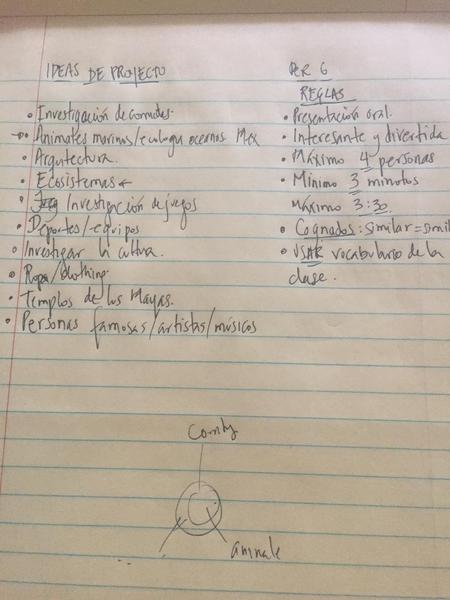 IDEAS DE PROYECTO
• Investigación de comidas.
• Animales marinos/ecologia oceanos Mex
• Arquitectura.
• Ecosistemas
• Investigación de juegos
• Deportes/equipos
• Investigar la cultura.
• Ropa/clothing.
• Templos de los Mayas.
• Personas famosas/artistas/músicos
PER 6
REGLAS
• Presentación oral.
• Interesante y divertida
• Máximo 4 personas
• Mínimo 3 minutos
Máximo 3:30.
• Cognados: similar = simil
• USAR vocabulario de la
clase.